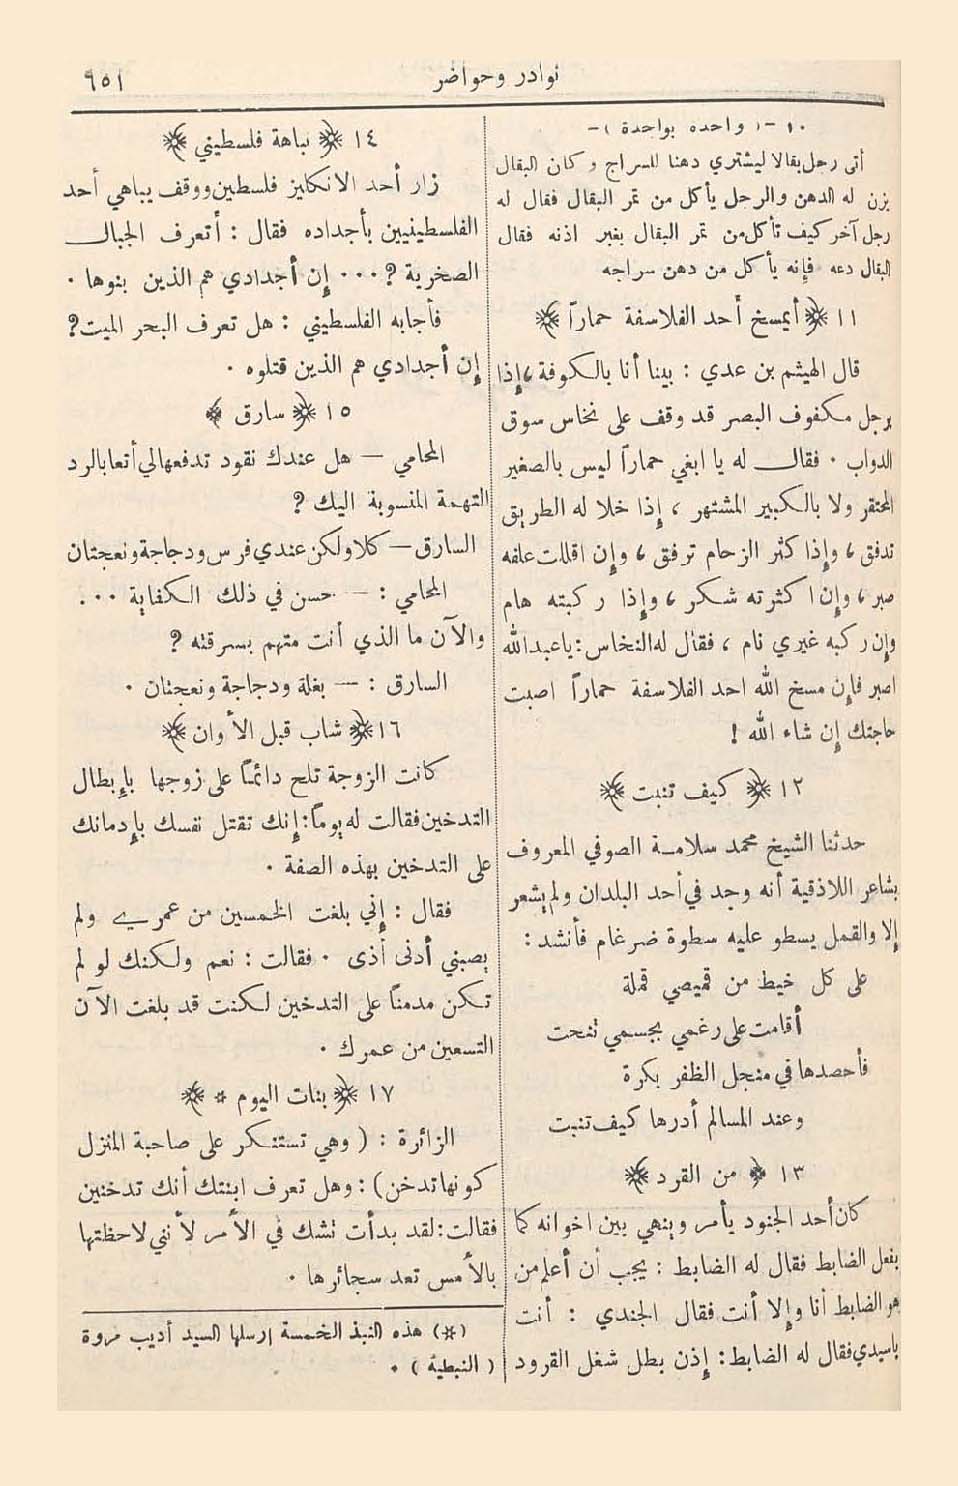 نوادر وحواضر
٩٥١
١٠ -( واحده بواحدة )-
أتى رجل بقالا ليشتري دهنا للسراج وكان البقال
يزن له الدهن والرجل يأكل من تمر البقال فقال له
رجل آخر كيف تأكل من تمر البقال بغير اذنه فقال
البقال دعه فإنه يأكل من دهن سراجه
١١ ﴿ أيمسخ أحد الفلاسفة حماراً ﴾
قال الهيثم بن عدي : بينا أنا بالكوفة ، إذا
برجل مكفوف البصر قد وقف على نخاس سوق
الدواب . فقال له يا ابغني حماراً ليس بالصغير
المحتقر ولا بالكبير المشتهر ، إذا خلا له الطريق
تدفق ، وإذا كثر الزحام ترفق ، وإن اقللت علفه
صبر ، وإن اكثرته شكر ، وإذا ركبته هام
وإن ركبه غيري نام ، فقال له النخاس : يا عبد الله
اصبر فإن مسخ الله احد الفلاسفة حماراً اصبت
حاجتك إن شاء الله !
١٢ ﴿ كيف تنبت ﴾
حدثنا الشيخ محمد سلامة الصوفي المعروف
بشاعر اللاذقية أنه وجد في أحد البلدان ولم يشعر
إلا والقمل يسطو عليه سطوة ضرغام فأنشد :
على كل خيط من قميصي قملة
أقامت على رغمي بجسمي تنحت
فأحصدها في منجل الظفر بكرة
وعند المسالم أدرها كيف تنبت
١٣ ﴿ من القرد ﴾
كان أحد الجنود يأمر وينهي بين اخوانه كما
يفعل الضابط فقال له الضابط : يجب أن أعلم من
هو الضابط أنا وإلا أنت فقال الجندي : أنت
ياسيدي فقال له الضابط : إذن بطل شغل القرود
١٤ ﴿ نباهة فلسطيني ﴾
زار أحد الانكليز فلسطين ووقف يباهي أحد
الفلسطينيين بأجداده فقال : أتعرف الجبال
الصخرية ? ... إن أجدادي هم الذين بنوها .
فأجابه الفلسطيني : هل تعرف البحر الميت ?
إن أجدادي هم الذين قتلوه .
١٥ ﴿ سارق ﴾
المحامي — هل عندك نقود تدفعها لي أتعابا لرد
التهمة المنسوبة اليك ?
السارق — كلا ولكن عندي فرس ودجاجة ونعجتان
المحامي : — حسن في ذلك الكفاية ...
والآن ما الذي أنت متهم بسرقته ?
السارق : — بغلة ودجاجة ونعجتان .
١٦ ﴿ شاب قبل الأوان ﴾
كانت الزوجة تلح دائماً على زوجها بإبطال
التدخين فقالت له يوماً : إنك تقتل نفسك بإدمانك
على التدخين بهذه الصفة .
فقال : إني بلغت الخمسين من عمري ولم
يصبني أدنى أذى . فقالت : نعم ولكنك لو لم
تكن مدمناً على التدخين لكنت قد بلغت الآن
التسعين من عمرك .
١٧ ﴿ بنات اليوم * ﴾
الزائرة : ( وهي تستنكر على صاحبة المنزل
كونها تدخن ) : وهل تعرف ابنتك أنك تدخنين
فقالت : لقد بدأت تشك في الأمر لأنني لاحظتها
بالأمس تعد سجائرها .
(*) هذه النبذ الخمسة ارسلها السيد أديب مروة
( النبطية ) .